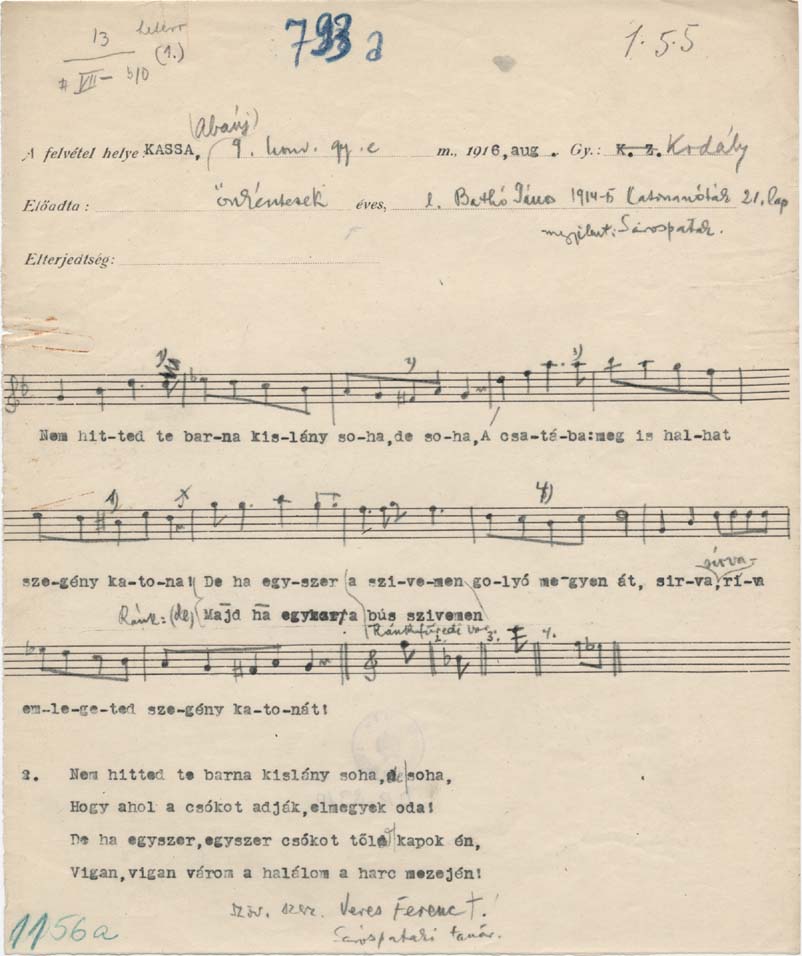 13
VII
(1.)
793 a
1.5.5
(Abaúj)
A felvétel helye: KASSA, 9. honv. gy. e m., 1916, aug. Gy.: K. Z. Kodály
Előadta: önkéntesek éves, l. Bathó János 1914-5 Katonanóták 21. lap
megjelent: Sárospatak.
Elterjedtség:
1) 2) 3)
Nem hit-ted te bar-na kis-lány so-ha,de so-ha, A csa-tá-ba:meg is hal-hat
1) x 4)
sze-gény ka-to-na! De ha egy-szer a szi-ve-men go-lyó me-gyen át, sir-va,rí-va
sírva-
Ránk: (de) Majd ha egykorra bús szivemen
Ránkfüredi var.
1. 2. 3. 4.
em-le-ge-ted sze-gény ka-to-nát!
2. Nem hitted te barna kislány soha,de soha,
Hogy ahol a csókot adják,elmegyek oda!
De ha egyszer,egyszer csókot tőled kapok én,
Vigan,vigan várom a halálom a harc mezején!
szöv. szerz. Veres Ferenc †.!
Sárospataki tanár.
1156a